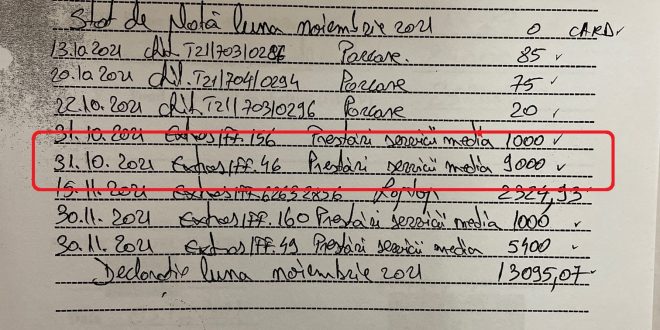 Stat de Plată luna noiembrie 2021 0 CARD
13.10.2021 chit. T21/703/0286 Parcare. 85
20.10.2021 chit. T21/704/0294 Parcare 75
22.10.2021 chit. T21/703/0296 Parcare 20
31.10.2021 Extras/FF.156 Prestări servicii media 1000
31.10.2021 Extras/FF.46 Prestări servicii media 9000
15.11.2021 Extras/FF.62632856 Laptop 2324,93
30.11.2021 Extras/FF.160 Prestări servicii media 1000
30.11.2021 Extras/FF.49 Prestări servicii media 5400
Declarație luna noiembrie 2021 13095,07